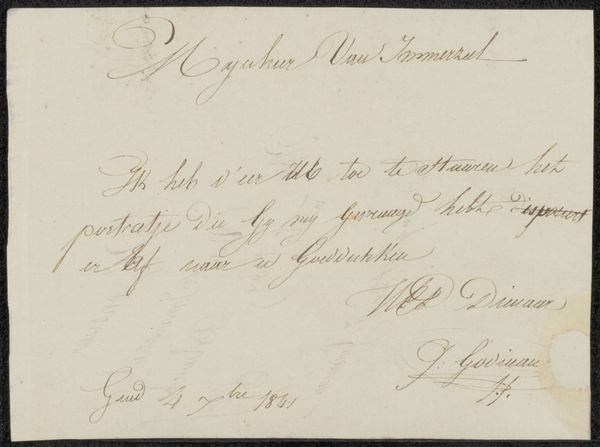 Mijnheer Van Immerzeel
Ik heb d'eer UE toe te stuuren het
portratje die Gy my gevraagd hebt
er af naar u Goeddunken
UEd Dienaar
J: Godineau
Gend 4 xbre 1841